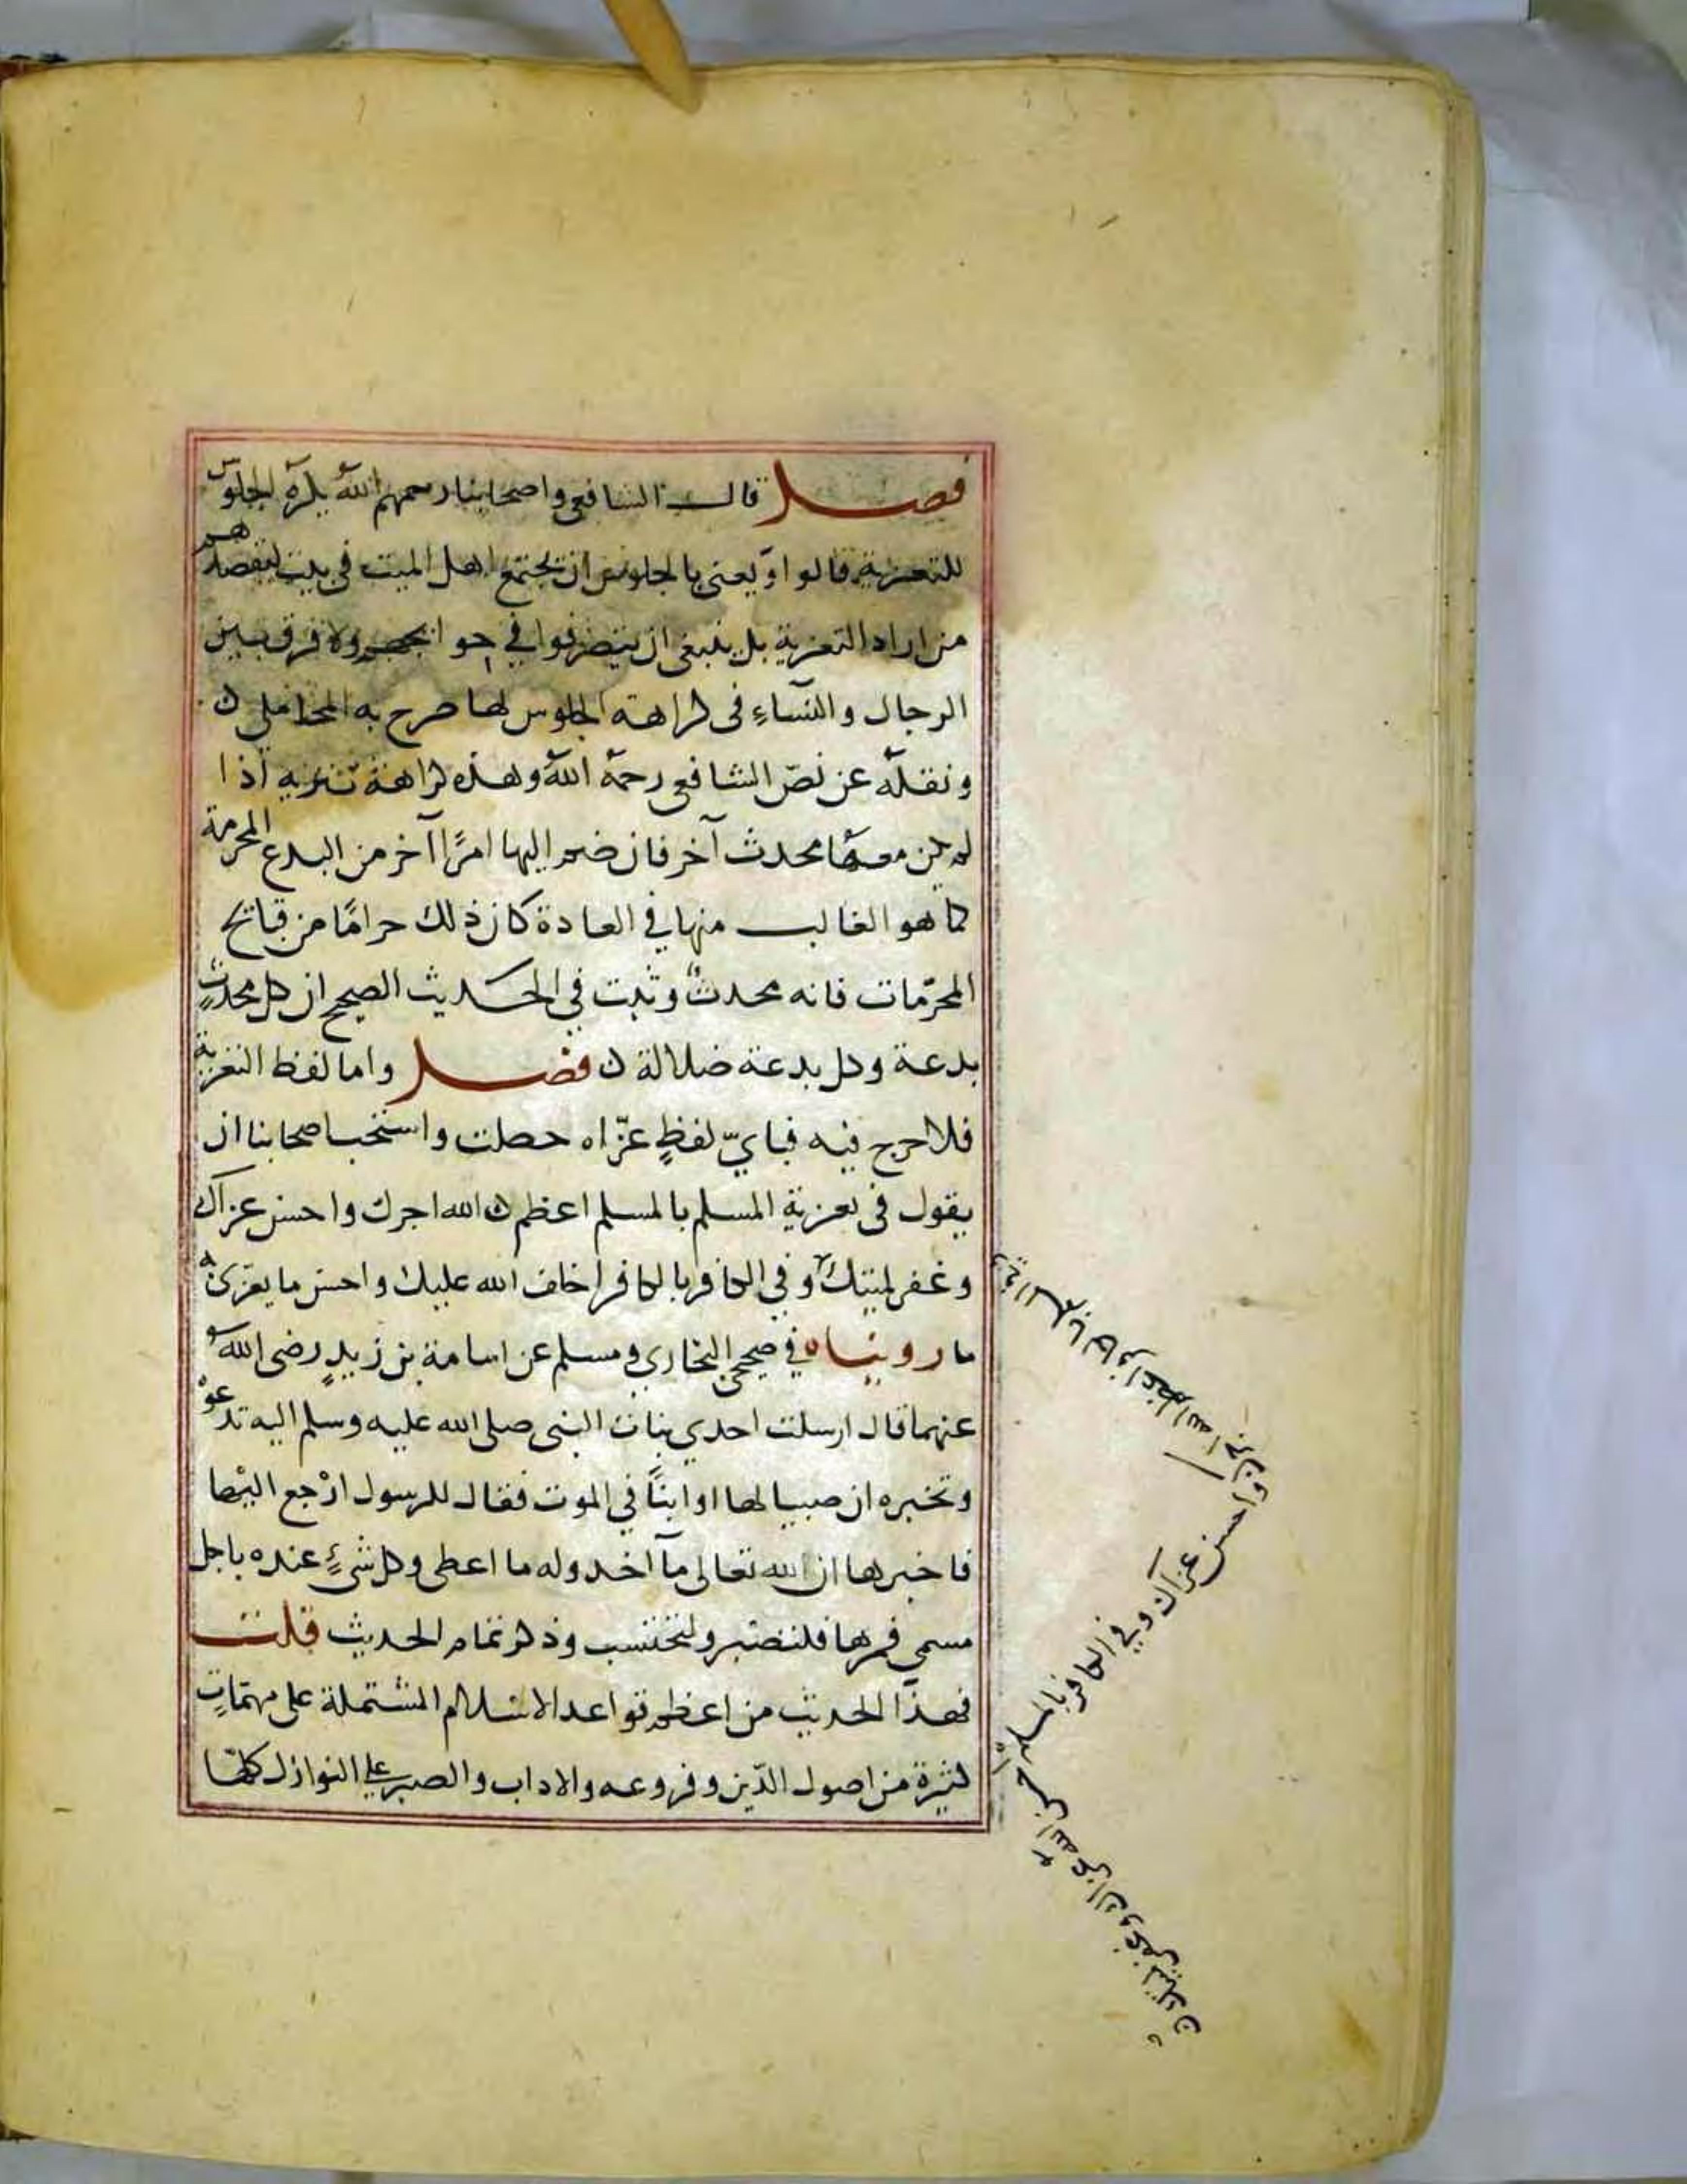 فصل قال الشافعي واصحابنا رحمهم الله يكره الجلوس
للتعزية قالوا ويعنى بالجلوس ان يجتمع اهل الميت فى بيت ليقصدهم
من اراد التعزية بل ينبغى ان ينصرفوا في حوائجهم ولا فرق بين
الرجال والنسآء فى كراهة الجلوس لها صرح به المحاملى ن
ونقله عن نصّ الشافعى رحمه الله وهذه كراهة تنزيه اذا
لم يكن معها محدث آخر فان ضم اليها امرًا آخر من البدع المحرمة
كما هو الغالب منها في العادة كان ذلك حرامًا من قبائح
المحرّمات فانه محدثٌ وثبت في الحديث الصحيح ان كل محدثٍ
بدعة وكل بدعة ضلالة ن فصل واما لفظ التعزية
فلا حرج فيه فباىّ لفظٍ عزّاه حصلت واستحب اصحابنا ان
يقول فى تعزية المسلم بالمسلم اعظم الله اجرك واحسن عزآك
وغفر لميتك وفى الكافر بالكافر اخلف الله عليك واحسن ما يعزى به
ما رويناه في صحيحى البخاري ومسلم عن اسامة بن زيدٍ رضى الله
عنهما قال ارسلت احدي بنات النبى صلى الله عليه وسلم اليه تدعوْ
وتخبره ان صبيا لها او ابنًا في الموت فقال للرسول ارْجع اليْها
فاخبرها ان لله تعالى مآ اخذ وله ما اعطى وكل شىءٍ عنده باجل
مسمى فمرها فلتصْبر ولتحتسب وذكر تمام الحديث قلت
فهذا الحديث من اعظم قواعد الاسلام المشتملة على مهمّاتٍ
كثيرة من اصول الدّين وفروعه والاداب والصبر على النوازل كلّها
وفي المسلم بالكافر اعظم الله اجرك
واحسن عزآك وفي الكافر بالمسلم
احسن الله عزاك وغفر لميتك ن